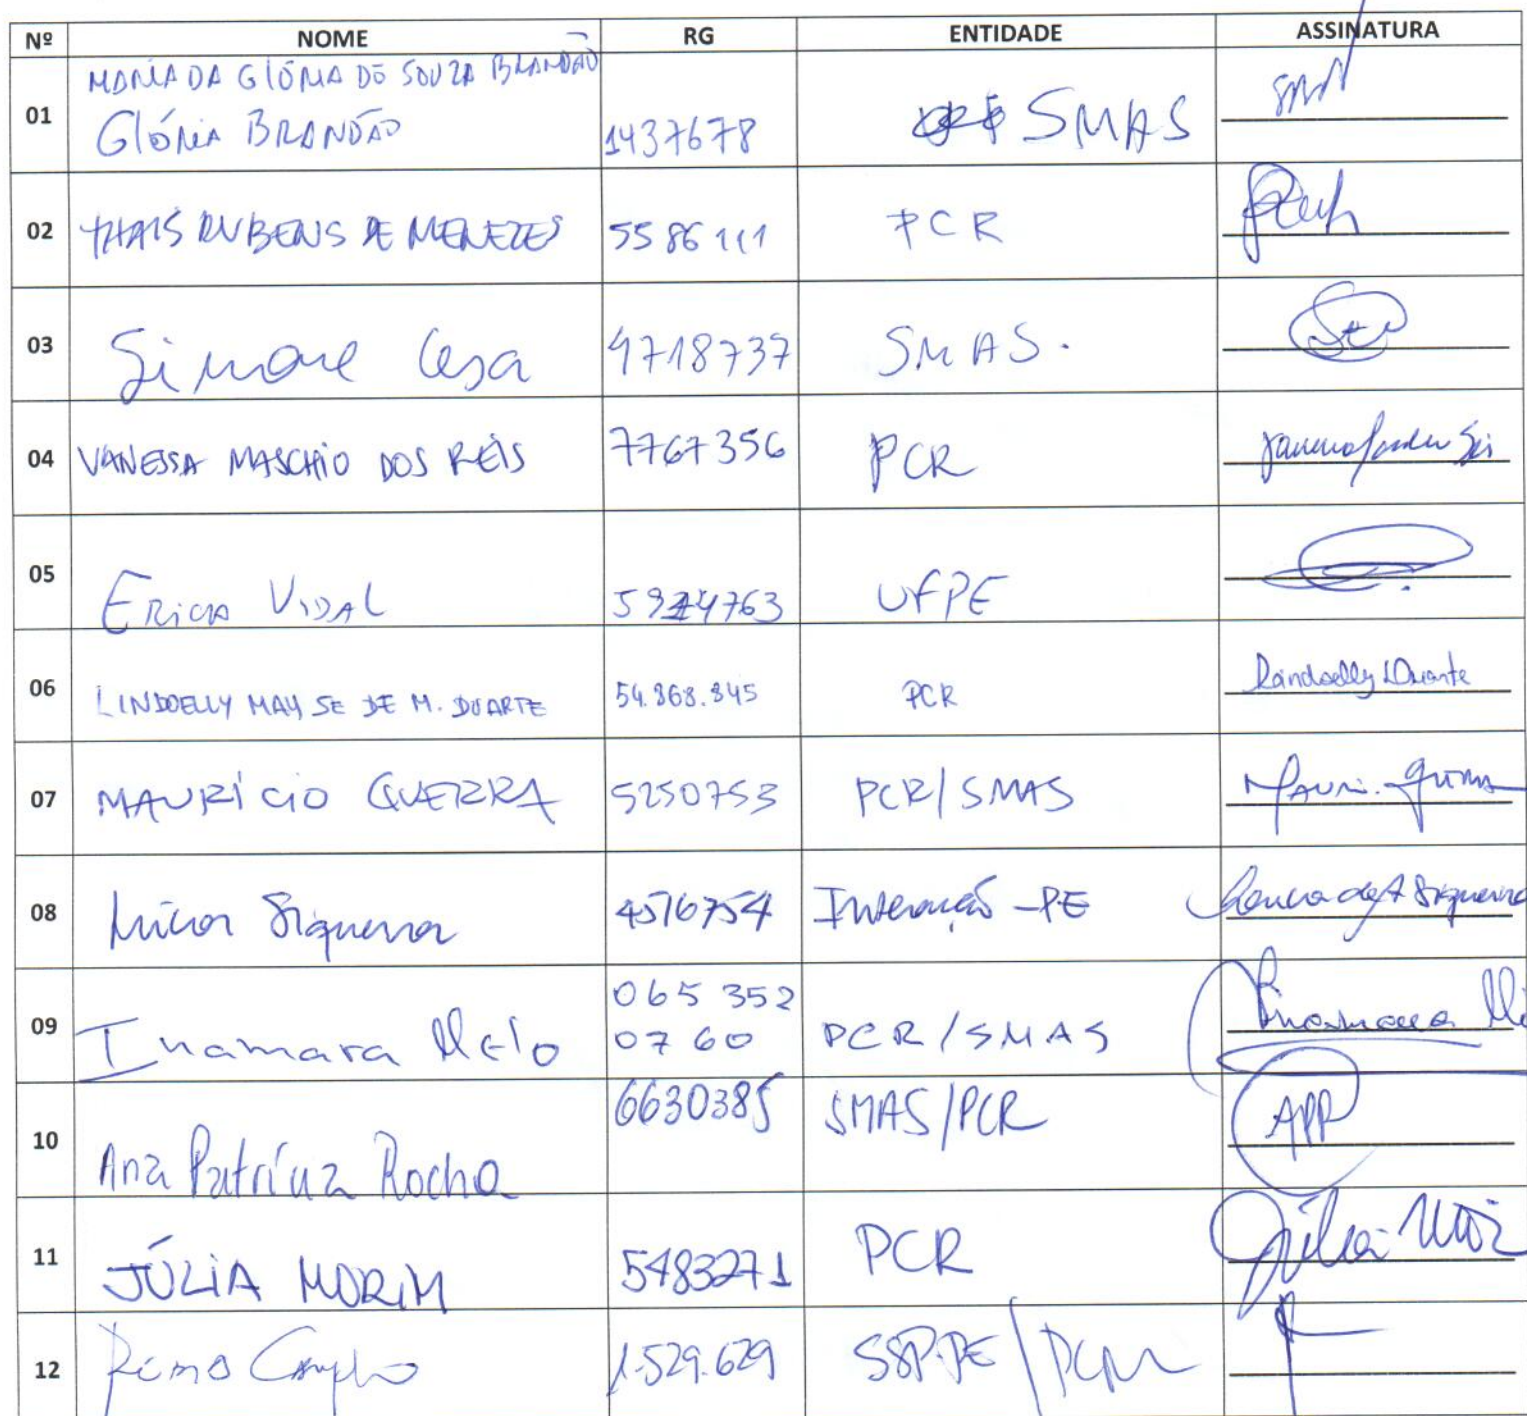 Nº NOME RG ENTIDADE ASSINATURA
MARIA DA GLÓRIA DE SOUZA BRANDÃO
01 GLÓRIA BRANDÃO 1437678 SMAS
02 THAÍS RUBENS DE MENEZES 5586111 PCR
03 Simone 4718737 SMAS.
04 VANESSA MASCHIO DOS REIS 7767356 PCR
05 ERICA VIDAL UFPE
06 LINDOELLY MAYSE DE M. DUARTE 54.868.845 PCR Lindoelly Duarte
07 MAURÍCIO GUERRA 5250753 PCR/SMAS
08 Lúcia Siqueira 4516754 Interação-PE Siqueira
065 352
09 Inamara Melo 0760 PCR/SMAS Inamara
10 Ana Patrícia Rocha 6630385 SMAS/PCR APR
11 JÚLIA MORIM 5483271 PCR Júlia
12 1.529.629 SSP.PE